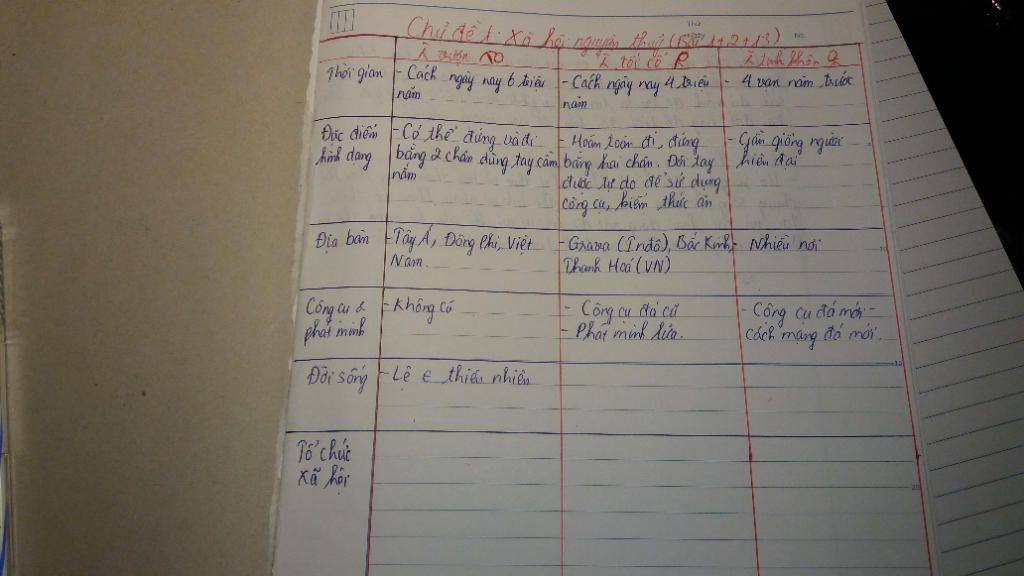 Thứ
Ngày
No.
Chủ đề 1: Xã hội nguyên thuỷ (Bài 1+2+13)
vượn
tối cổ
tinh khôn
Thời gian
- Cách ngày nay 6 triệu
năm
- Cách ngày nay 4 triệu
năm
- 4 vạn năm trước
Đặc điểm
hình dạng
- Có thể đứng và đi
bằng 2 chân dùng tay cầm
nắm
- Hoàn toàn đi, đứng
bằng hai chân. Đôi tay
được tự do để sử dụng
công cụ, kiếm thức ăn
- Gần giống người
hiện đại
Địa bàn
- Tây Á, Đông Phi, Việt
Nam.
- Grava (Inđô), Bắc Kinh,
Thanh Hoá (VN)
- Nhiều nơi
Công cụ &
phát minh
- Không có
- Công cụ đá cũ
- Phát minh lửa.
- Công cụ đá mới -
cách mạng đá mới.
Đời sống
- Lệ e thiên nhiên
Tổ chức
xã hội
10
15
20